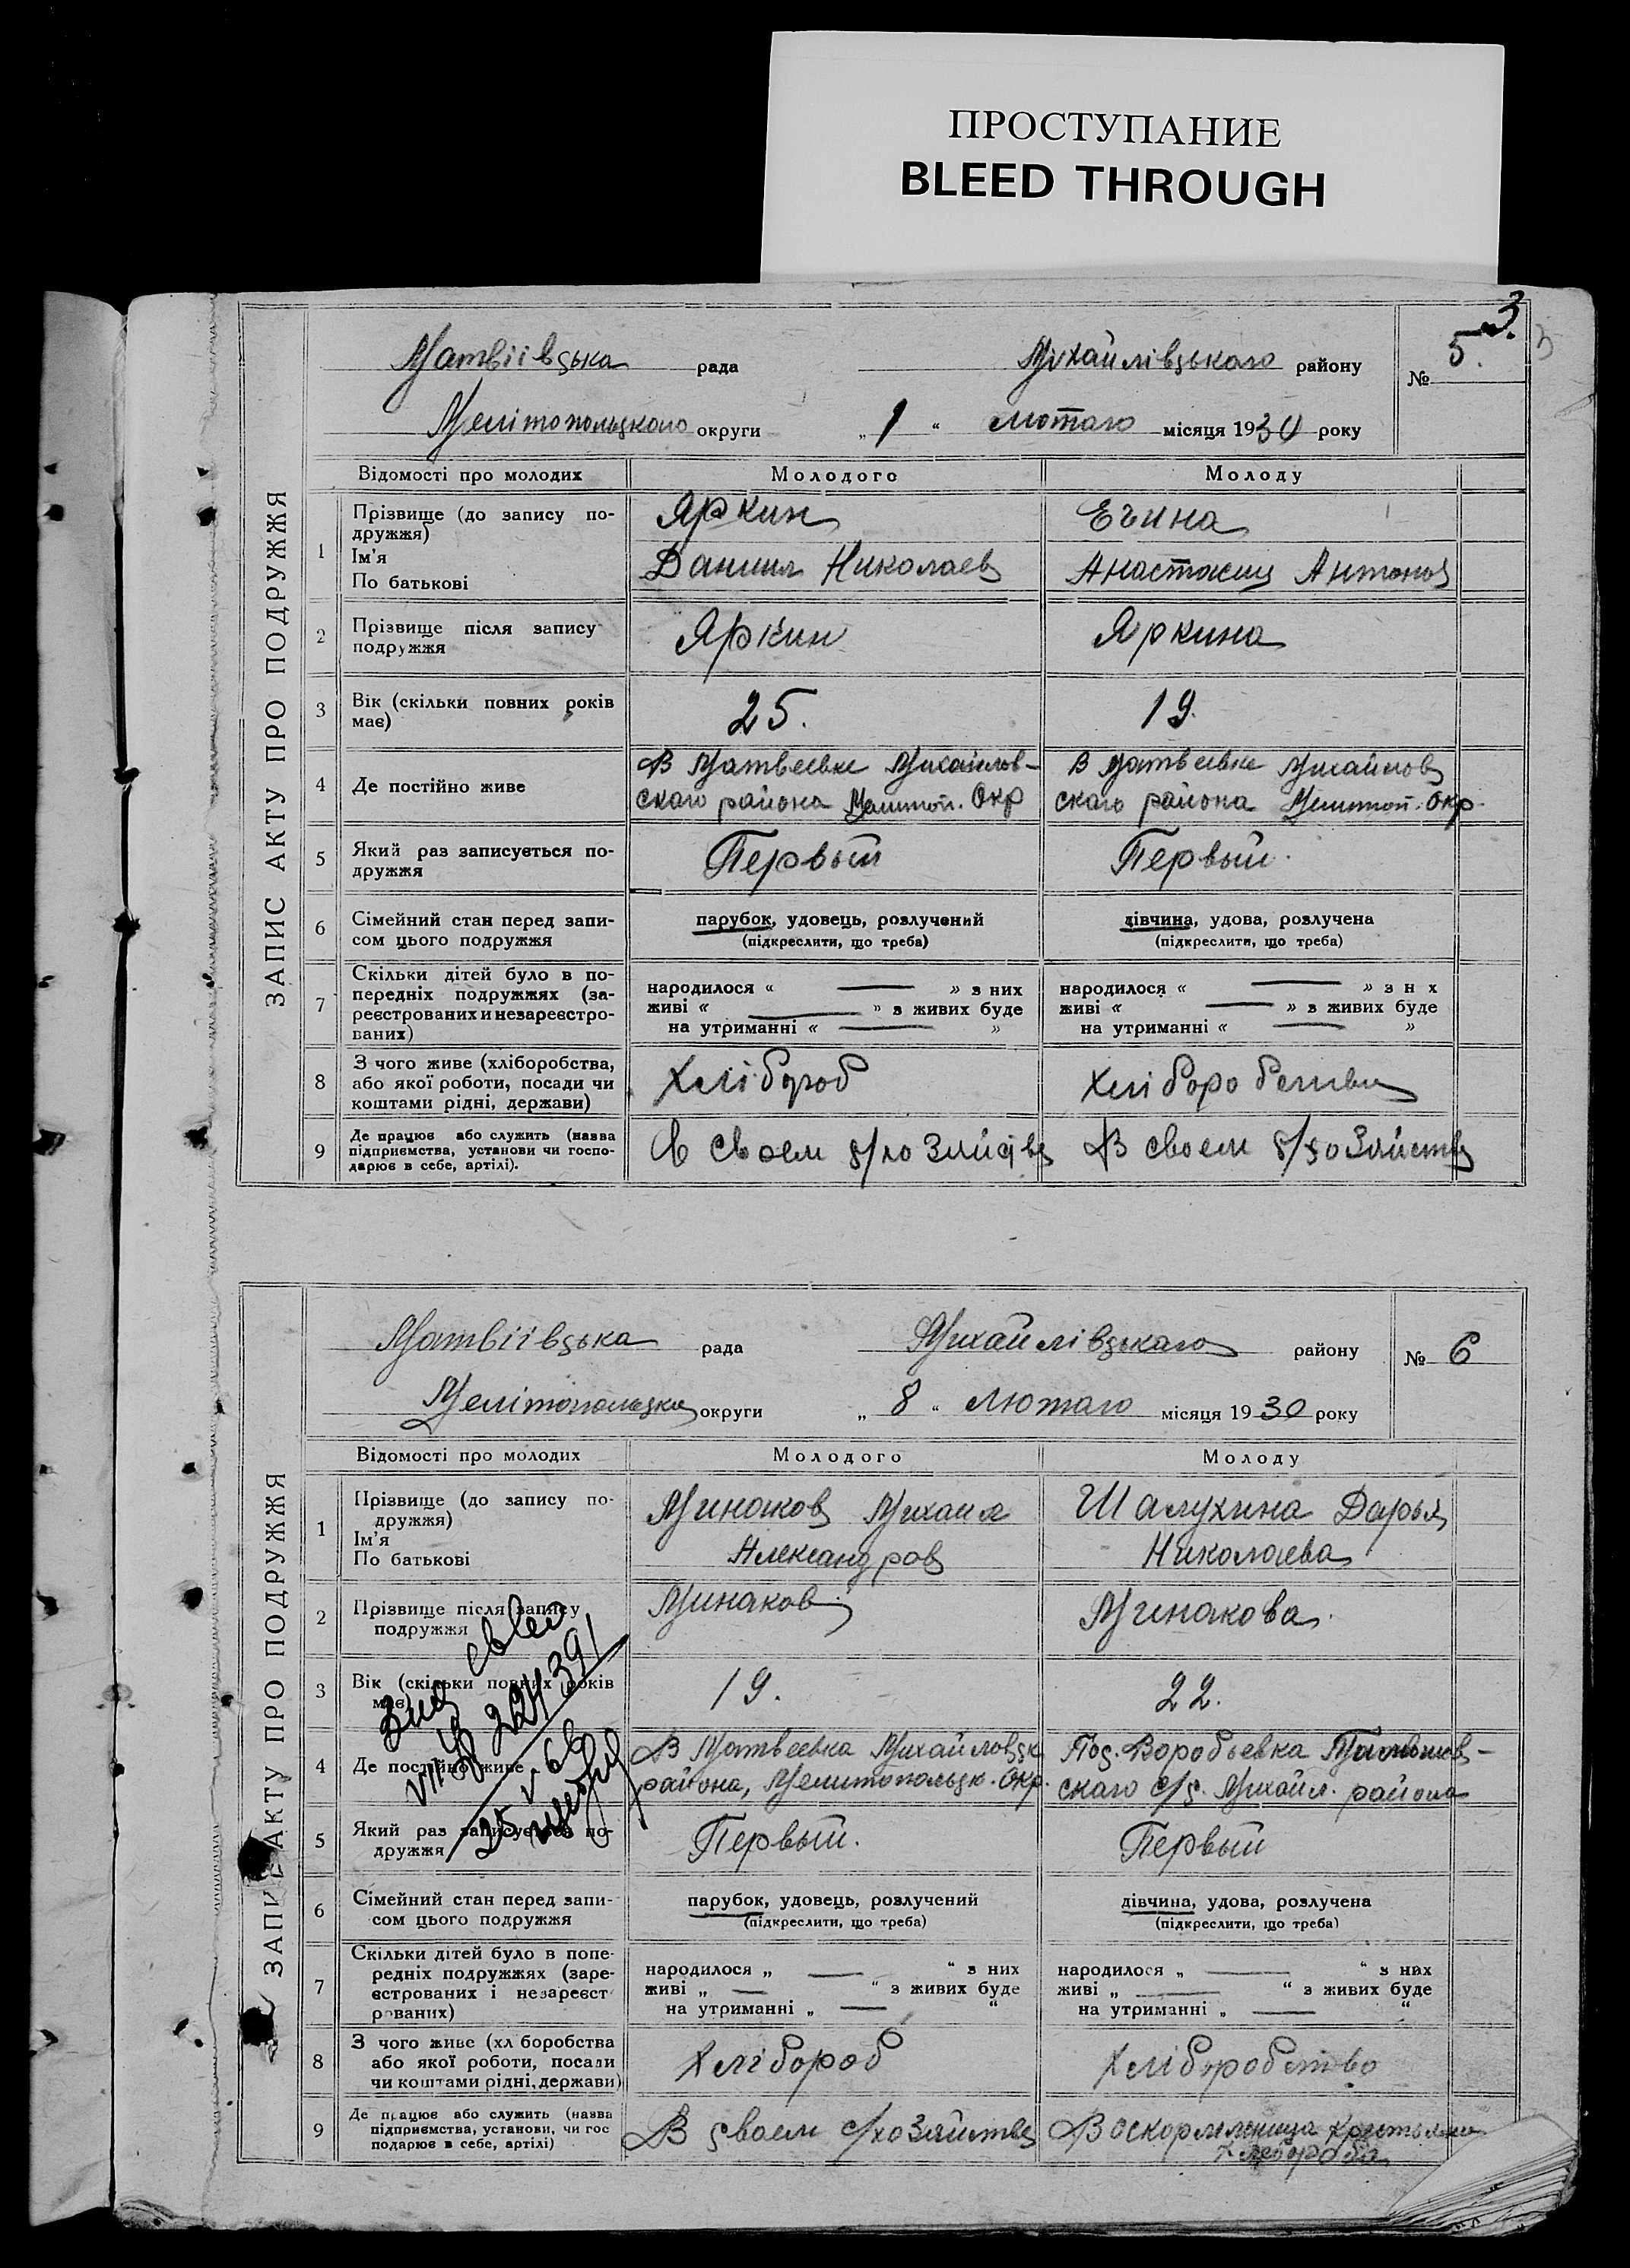 ПРОСТУПАНИЕ
BLEED THROUGH
3.
5
ЗАПИС АКТУ ПРО ПОДРУЖЖЯ
Матвіівська рада Михайлівського району № 5.
Мелітопольцкого округи „ 1 “ лютого місяця 1930 року
Відомості про молодих Молодого Молоду
1 Прізвище (до запису по-
дружжя)
Ім'я
По батькові
Яркин
Даниил Николаев
Егина
Анастасия Антонов
2 Прізвище після запису
подружжя
Яркин Яркина
3 Вік (скільки повних років
має)
25. 19.
4 Де постійно живе
В Матвеевке Михайлов-
скаго района Мелитоп. Окр
В Матвеевке Михайлов
скаго района Мелитоп. Окр.
5 Який раз записується по-
дружжя
Первый Первый.
6 Сімейний стан перед запи-
сом цього подружжя
парубок, удовець, розлучений
(підкреслити, що треба)
дівчина, удова, розлучена
(підкреслити, що треба)
7 Скільки дітей було в по-
передніх подружжях (за-
реєстрованих и незареєстро-
ваних)
народилося « — » з них
живі « — » з живих буде
на утриманні « — »
народилося « — » з н х
живі « — » з живих буде
на утриманні « — »
8 З чого живе (хліборобства,
або якої роботи, посади чи
коштами рідні, держави)
Хлібороб
9 Де працює або служить (назва
підприємства, установи чи госпо-
дарює в себе, артілі).
В своем с/хозяйстве
В своем с/хозяйстве
ЗАПИС АКТУ ПРО ПОДРУЖЖЯ
Матвіівська рада Михайлівського району № 6
Мелітопольцки округи „ 8 “ Лютого місяця 1930 року
Відомості про молодих Молодого Молоду
1 Прізвище (до запису по-
дружжя)
Ім'я
По батькові
Минаков Михаил
Александров
Шалухина Дарья
Николаева
2 Прізвище після запису
подружжя
Минаков Минакова.
3 Вік (скільки повних років
має)
19. 22.
4 Де постійно живе
В Матвеевка Михайловск
района, Мелитопольск. Окр.
Пос. Воробьевка
скаго с/с. Михайл. района
5 Який раз записується по-
дружжя
Первый. Первый
6 Сімейний стан перед запи-
сом цього подружжя
парубок, удовець, розлучений
(підкреслити, що треба)
дівчина, удова, розлучена
(підкреслити, що треба)
7 Скільки дітей було в попе-
редніх подружжях (заре-
єстрованих і незареєст
рованих)
народилося „ — “ з них
живі „ — “ з живих буде
на утриманні „ — “
народилося „ — “ з них
живі „ — “ з живих буде
на утриманні „ — “
8 З чого живе (хл боробства
або якої роботи, посади
чи коштами рідні, держави)
Хлібороб Хліборобство
9 Де працює або служить (назва
підприємства, установи, чи гос
подарює в себе, артілі)
В своем с/хозяйстве
хлебороба